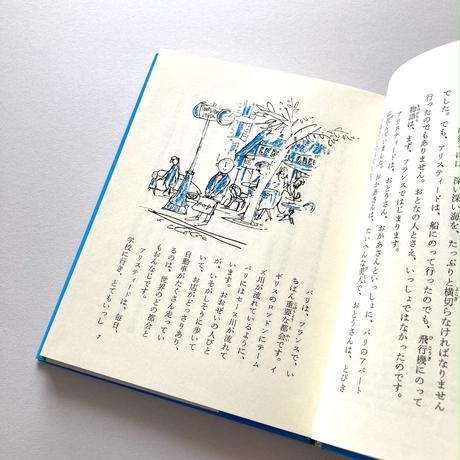 深い深い海を、たっぷりと横切らなければなりません
でした。でも、アリスティードは、船にのって行ったのでも、飛行機にのって
行ったのでもありません。おとなの人とさえ、いっしょではなかったのです。
物語は、まず、フランスではじまります。
おとうさん、おかあさんといっしょに、パリのアパート
に住んでいました。おかあさんは、たいへんな美人で、おとうさんは、とびき
パリは、フランスで、い
ちばん重要な都会です。イ
ギリスのロンドンにテーム
ズ川が流れているように、
パリにはセーヌ川が流れて
います。おおぜいの人びと
が、いそがしそうに歩いて
いて、お店がどっさりあり、
自動車がたくさん走ってい
るのは、世界のどの都会と
もおんなじです。
アリスティードは、毎日、
学校に行き、とてもいっし
7